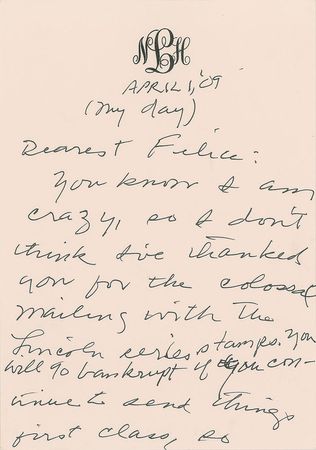 NLH
APRIL 1, '09
(my day)
Dearest Felice:
You know I am
crazy, so I don't
think I've thanked
you for the colossal
mailing with the
Lincoln series stamps. You
will go bankrupt if you con-
tinue to send things
first class, so